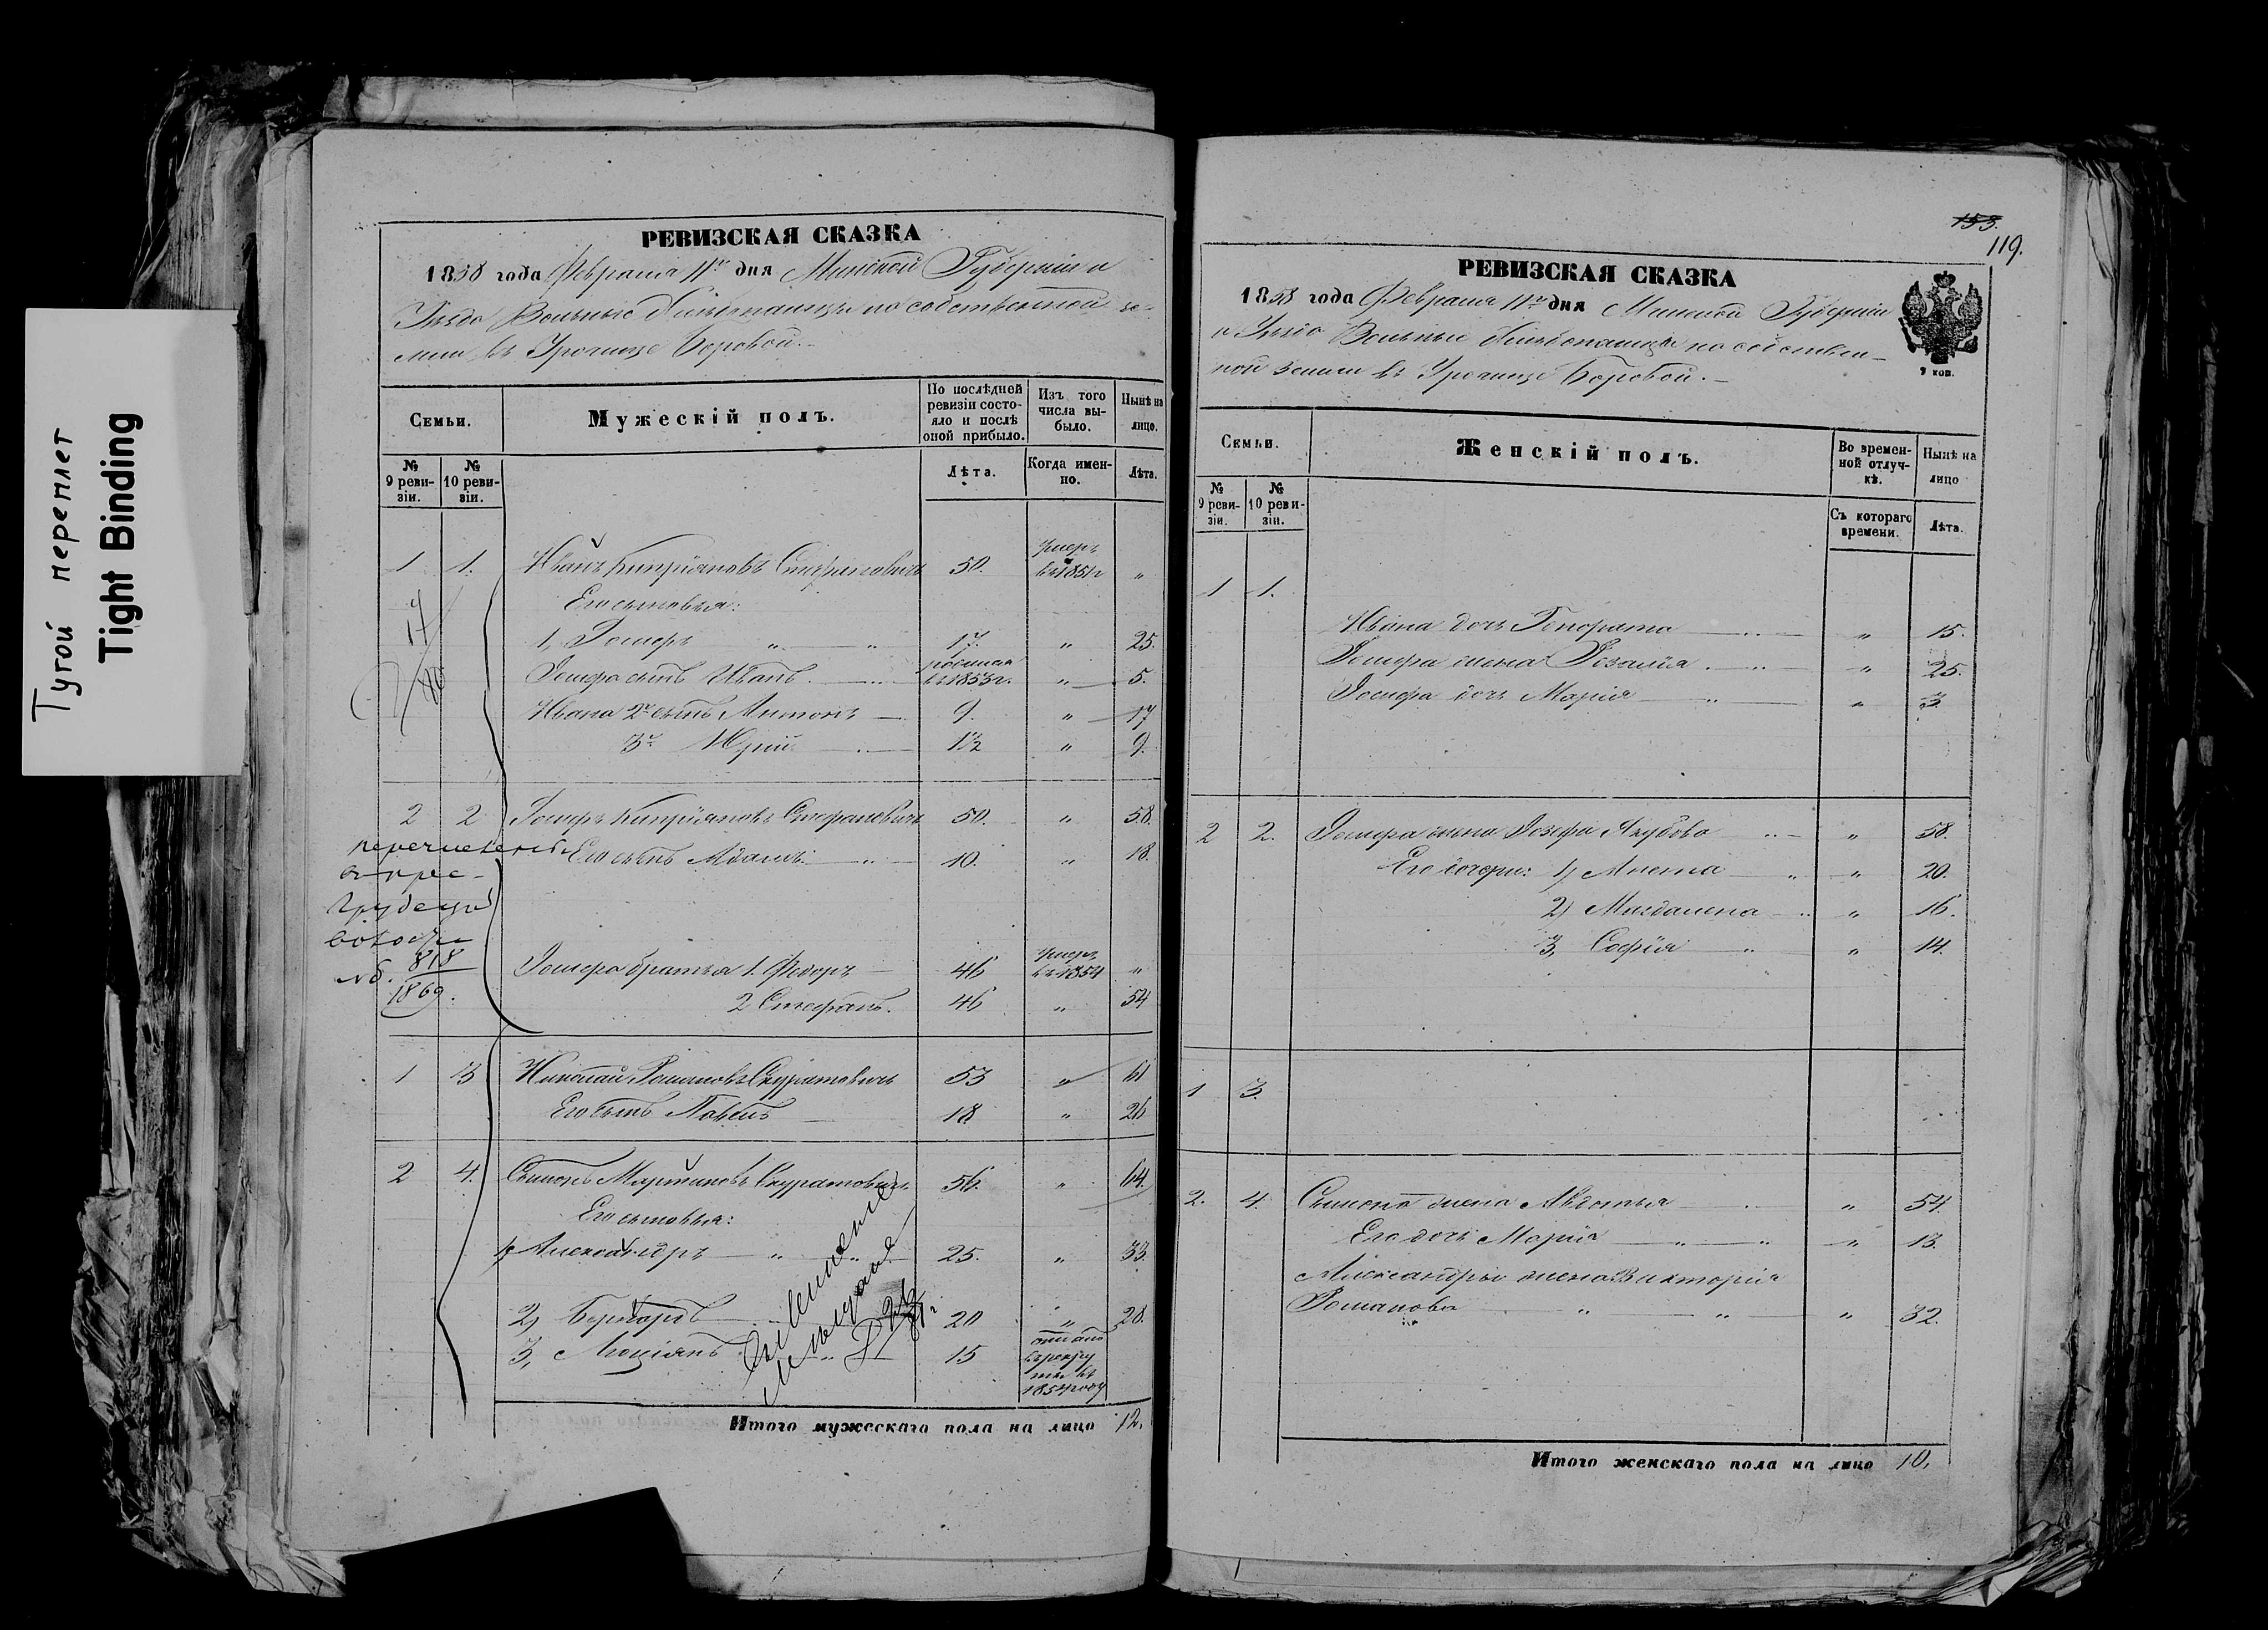 Тугой переплет
Tight Binding
РЕВИЗСКАЯ СКАЗКА
1858 года Февраля 11го дня Минской Губернiи и
Уѣзда Вольные Хлѣбопашцы на собственной зе-
мли въ Урочище Боровой.
Семьи.
Мужескій полъ.
По послѣдней ревизіи состо-яло и послѣ оной прибыло.
Изъ того числа вы-было.
Нынѣ на лицо.
№ 9 реви-зіи.
№ 10 реви-зіи.
Лѣта.
Когда имен-но.
Лѣта.
1 1. Иванъ Кипріяновъ 50. умеръ въ 1851г "
Его сыновья:
1, Іосифъ " " 17. " 25.
Іосифа сынъ Иванъ родился въ 1853г. " 5.
Ивана 2й сынъ Антонъ 9. " 17
3й Юрій 1½ " 9.
2 2 Іосифъ Кипріяновъ 50. " 58.
Его сынъ Адамъ " 10. " 18.
перечислены
волости
№ 818
1869.
Іосифа братья 1. Федоръ 46 умеръ въ 1854 "
2 Стефанъ. 46 " 54
1 3 Николай Романовъ Скуратовичъ 53 " 61
Его сынъ Павелъ 18 " 26
2 4. Сымонъ Мартиновъ Скуратовичъ 56. " 64.
Его сыновья:
1, Александръ " " 25. " 33.
2, Бернардъ 20 " 28.
3, Люціянъ " 15 отданъ въ рекру ты въ 1854 году
Итого мужескаго пола на лицо 12.
153.
119.
РЕВИЗСКАЯ СКАЗКА
1858 года Февраля 11го дня Минской Губерніи
и Уѣзда Вольные Хлѣбопашцы на собствен-
ной земли въ Урочище Боровой.
Семьи.
Женскій полъ.
Во времен-ной отлуч-кѣ.
Нынѣ на лицо
№ 9 реви-зіи.
№ 10 реви-зіи.
Съ котораго времени.
Лѣта.
1 1.
Ивана дочь Гонората " 15.
Іосифа жена Розалія " 25.
Іосифа дочь Марія " 3.
2 2. Іосифа жена Іозефа Якубова " 58.
Его дочери: 1, Анета " 20.
2, Магдалена " 16.
3, Софія " 14.
1 3.
2. 4. Сымона жена Авдотья " 54.
Его дочь Марія " 13.
Александры жена Викторія
Романова " 32.
Итого женскаго пола на лицо 10.